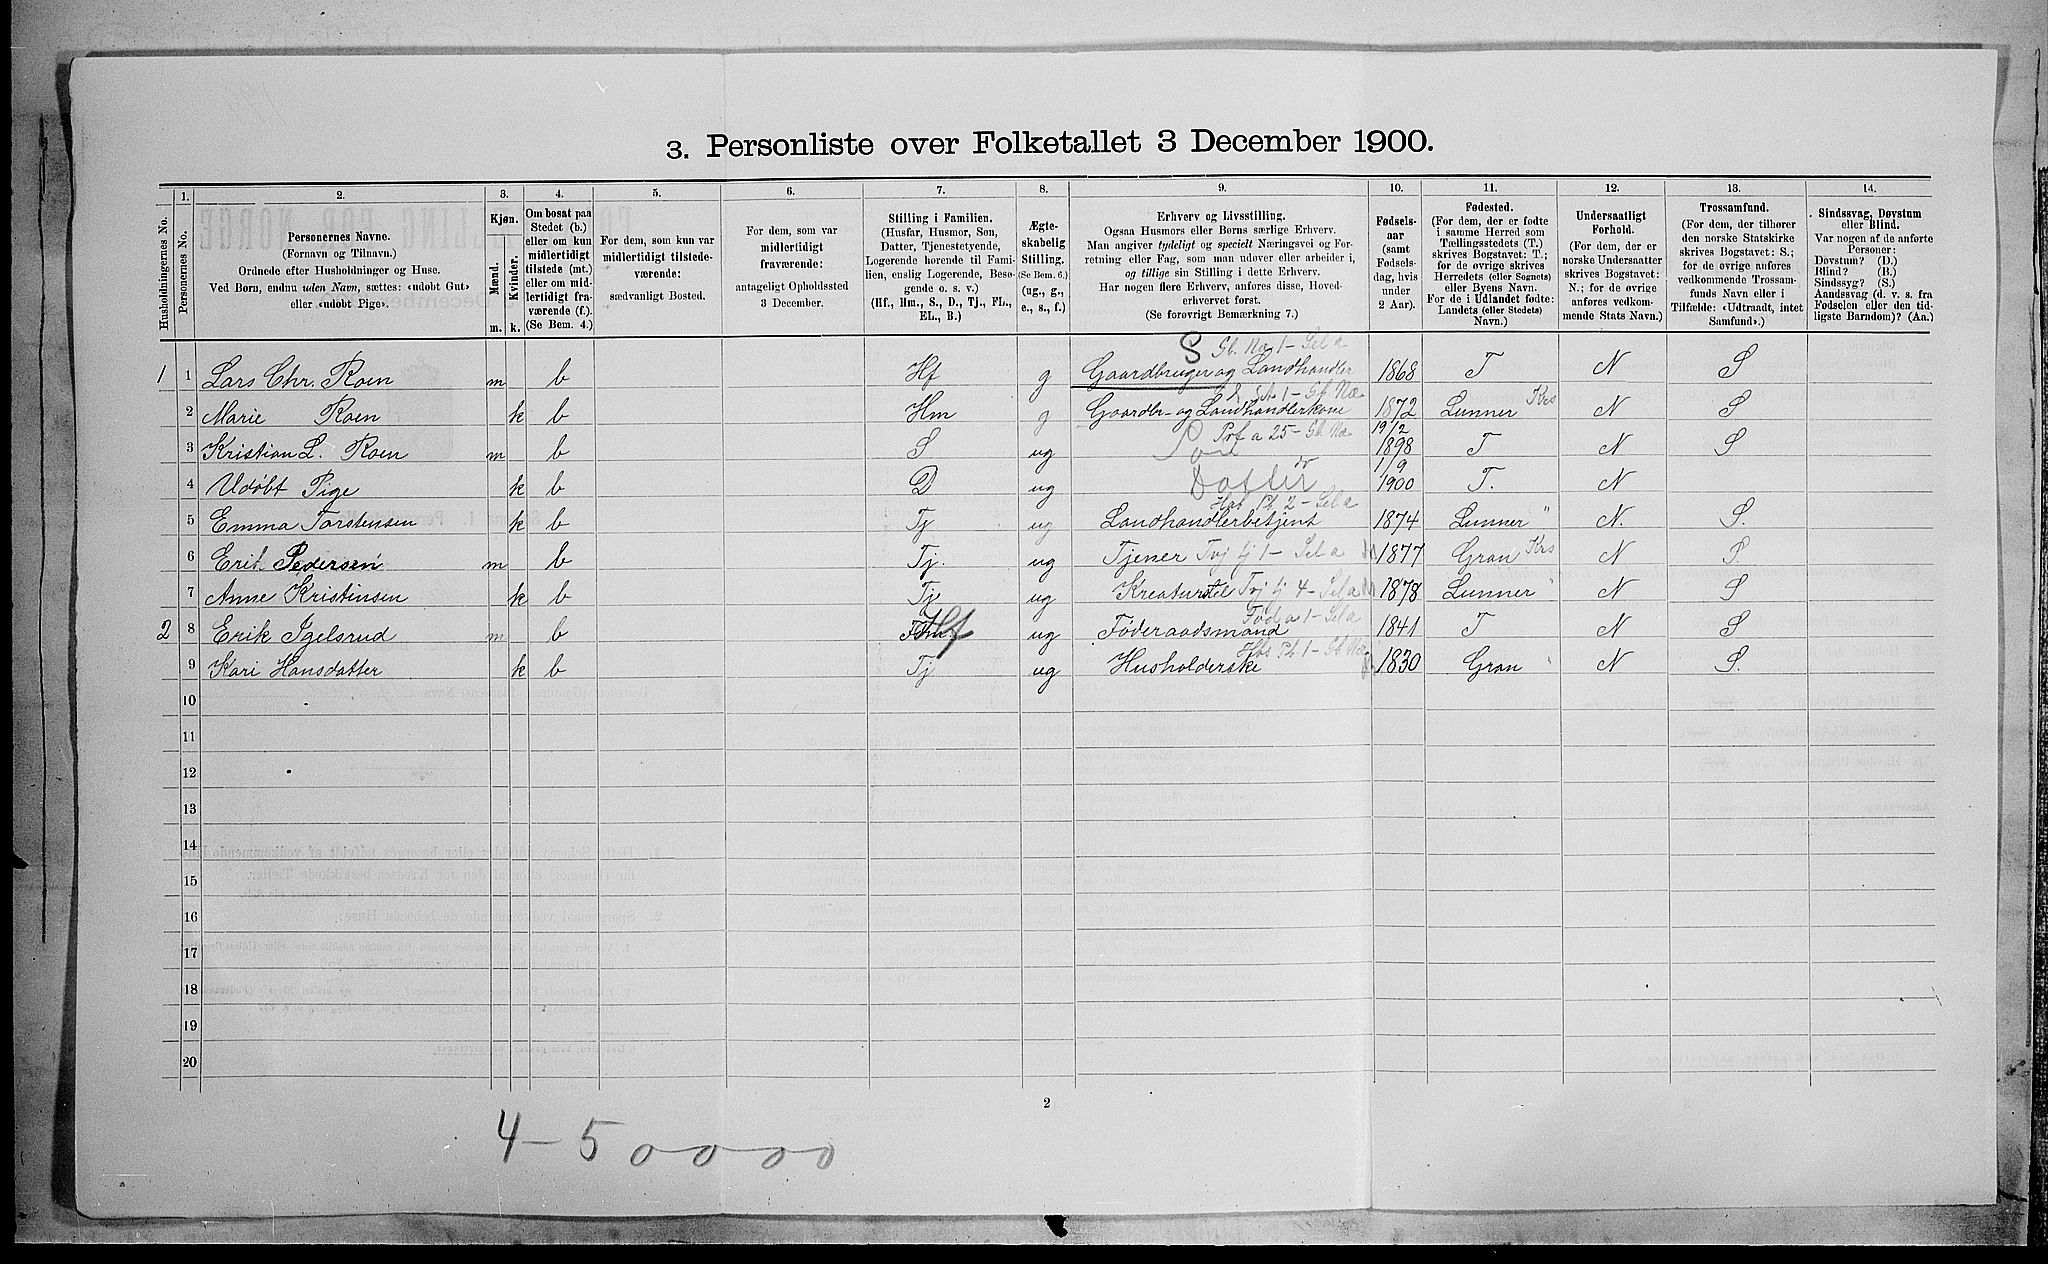 3. Personliste over Folketallet 3 December 1900.
1. 2. 3. 4. 5. 6. 7. 8. 9. 10. 11. 12. 13. 14.
Husholdningernes No.
Personernes No.
Personernes Navne.
(Fornavn og Tilnavn.)
Ordnede efter Husholdninger og Huse.
Ved Børn, endnu uden Navn, sættes: «udøbt Gut»
eller «udøbt Pige».
Kjøn.
Mænd.
Kvinder.
m. k.
Om bosat paa
Stedet (b.)
eller om kun
midlertidigt
tilstede (mt.)
eller om mid-
lertidigt fra-
værende (f.).
(Se Bem. 4.)
For dem, som kun var
midlertidigt tilstede-
værende:
sædvanligt Bosted.
For dem, som var
midlertidigt
fraværende:
antageligt Opholdssted
3 December.
Stilling i Familien.
(Husfar, Husmor, Søn,
Datter, Tjenestetyende,
Logerende hørende til Fami-
lien, enslig Logerende, Besø-
gende o. s. v.)
(Hf., Hm., S., D., Tj., FL.,
EL., B.)
Ægte-
skabelig
Stilling.
(Se Bem. 6.)
(ug., g.,
e., s., f.)
Erhverv og Livsstilling.
Ogsaa Husmors eller Børns særlige Erhverv.
Man angiver tydeligt og specielt Næringsvei og For-
retning eller Fag, som man udøver eller arbeider i,
og tillige sin Stilling i dette Erhverv.
Har nogen flere Erhverv, anføres disse, Hoved-
erhvervet først.
(Se forøvrigt Bemærkning 7.)
Fødsels-
aar
(samt
Fødsels-
dag, hvis
under
2 Aar).
Fødested.
(For dem, der er fødte
i samme Herred som
Tællingsstedets (T.)
skrives Bogstavet: T.;
for de øvrige skrives
Herredets (eller Sognets)
eller Byens Navn.
For de i Udlandet fødte:
Landets (eller Stedets)
Navn.)
Undersaatligt
Forhold.
(For dem, der er
norske Undersaatter
skrives Bogstavet:
N.; for de øvrige
anføres vedkom-
mende Stats Navn.)
Trossamfund.
(For dem, der tilhører
den norske Statskirke
skrives Bogstavet: S.;
for de øvrige anføres
vedkommende Trossam-
funds Navn eller i
Tilfælde: «Udtraadt, intet
Samfund».)
Sindssvag, Døvstum
eller Blind.
Var nogen af de anførte
Personer:
Døvstum? (D.)
Blind? (B.)
Sindssyg? (S.)
Aandssvag (d. v. s. fra
Fødselen eller den tid-
ligste Barndom)? (Aa.)
S Gb. Næ 1 - Sel a
1 1 Lars Chr. Roen m b Hf g Gaardbruger og Landhandler 1868 T N S
2 Marie Roen k b Hm g Gaardbr- og Landhandlerkone 1872 Lunner Krs N S
Prf a 25 - Gb. Næ 19/2
3 Kristian L. Roen m b S ug Søn 1898 T N S
1/9
4 Udøbt Pige k b D ug Datter 1900 T. N
Sel a
5 Emma Torstensen k b Tj ug Landhandlerbetjent 1874 Lunner " N. S.
6 Erik Pedersen m b Tj. ug Tjener Tvj tj 1 - Sel a 1877 Gran Krs N S.
7 Anne Kristinsen k b Tj ug Kreaturstel Tvj tj 4 - Sel a 1878 Lunner " N S
Fød a 1 - Sel a
2 8 Erik Igelsrud m b Hf ug Føderaadsmand 1841 T N S
9 Kari Hansdatter k b Tj ug Husholderske 1830 Gran " N S.
10
11
12
13
14
15
16
17
18
19
20
2
4 - 5 0000